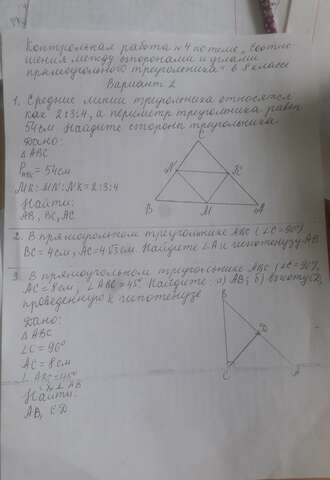 Контрольная работа №4 по теме „Соотно-
шения между сторонами и углами
прямоугольного треугольника" в 8 классе
Вариант 2
1. Средние линии треугольника относятся
как 2:3:4, а периметр треугольника равен
54см. Найдите стороны треугольника.
Дано:
△ABC
P ABC = 54см
MK:MN:NK=2:3:4
Найти:
AB, BC, AC
C
N
K
B
M
A
2. В прямоугольном треугольнике ABC (∠C=90°),
BC=4см, AC=4√3см. Найдите ∠A и гипотенузу AB
3. В прямоугольном треугольнике ABC (∠C=90°),
AC=8см, ∠ABC=45°. Найдите: а) AB; б) высоту CD,
проведенную к гипотенузе
Дано:
△ABC
∠C=90°
AC=8см
∠ABC=45°
⊥ AB
Найти:
AB, CD
B
D
C
A